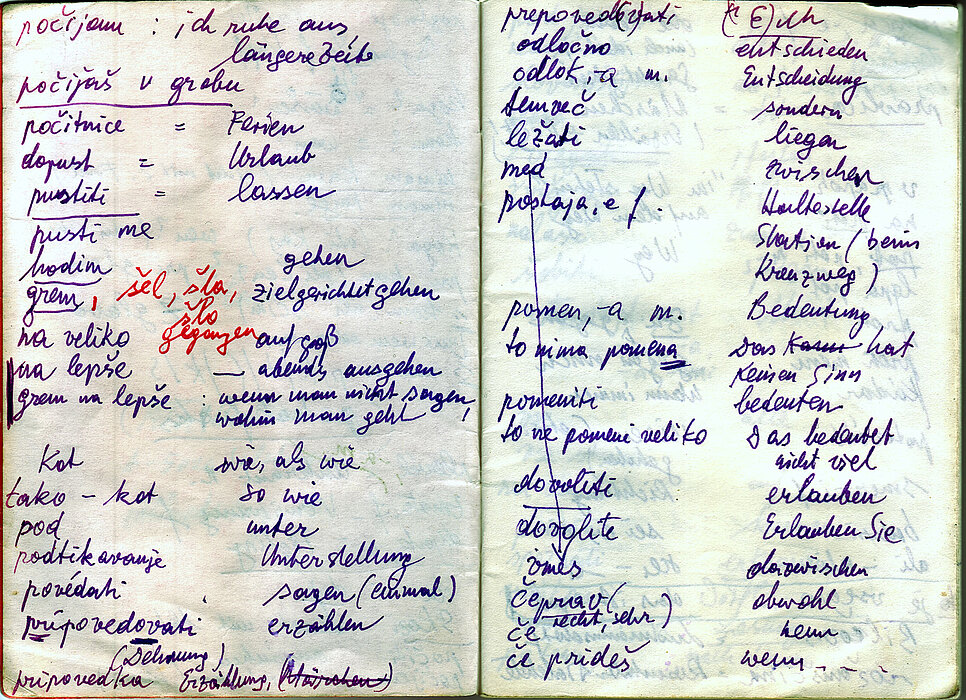 počijam : ich ruhe aus
längere Zeit
počijaš v grobu
počitnice = Ferien
dopust = Urlaub
pustiti = lassen
pusti me
hodim gehen
grem, šel, šla, zielgerichtet gehen
šlo
na veliko gegangen auf groß
na lepše — abends ausgehen
grem na lepše : wenn man nicht sagen,
wohin man geht!
Kot wie, als wie
tako – kot so wie
pod unter
podtikavanje Unterstellung
povédati sagen (einmal)
pripovedovati erzählen
(Dehnung)
pripovedka Erzählung, (Märchen)
odločno entschieden
odlok, -a m. Entscheidung
temveč sondern
ležati liegen
med zwischen
postaja, e f. Haltestelle
Station (beim
Kreuzweg)
pomen, -a m. Bedeutung
to nima pomena das kann hat
keinen Sinn
pomeniti bedeuten
to ne pomeni veliko das bedeutet
nicht viel
dovoliti erlauben
dovolite Erlauben Sie
vmes dazwischen
čeprav ( ) obwohl
recht, sehr
če wenn
če prideš wenn